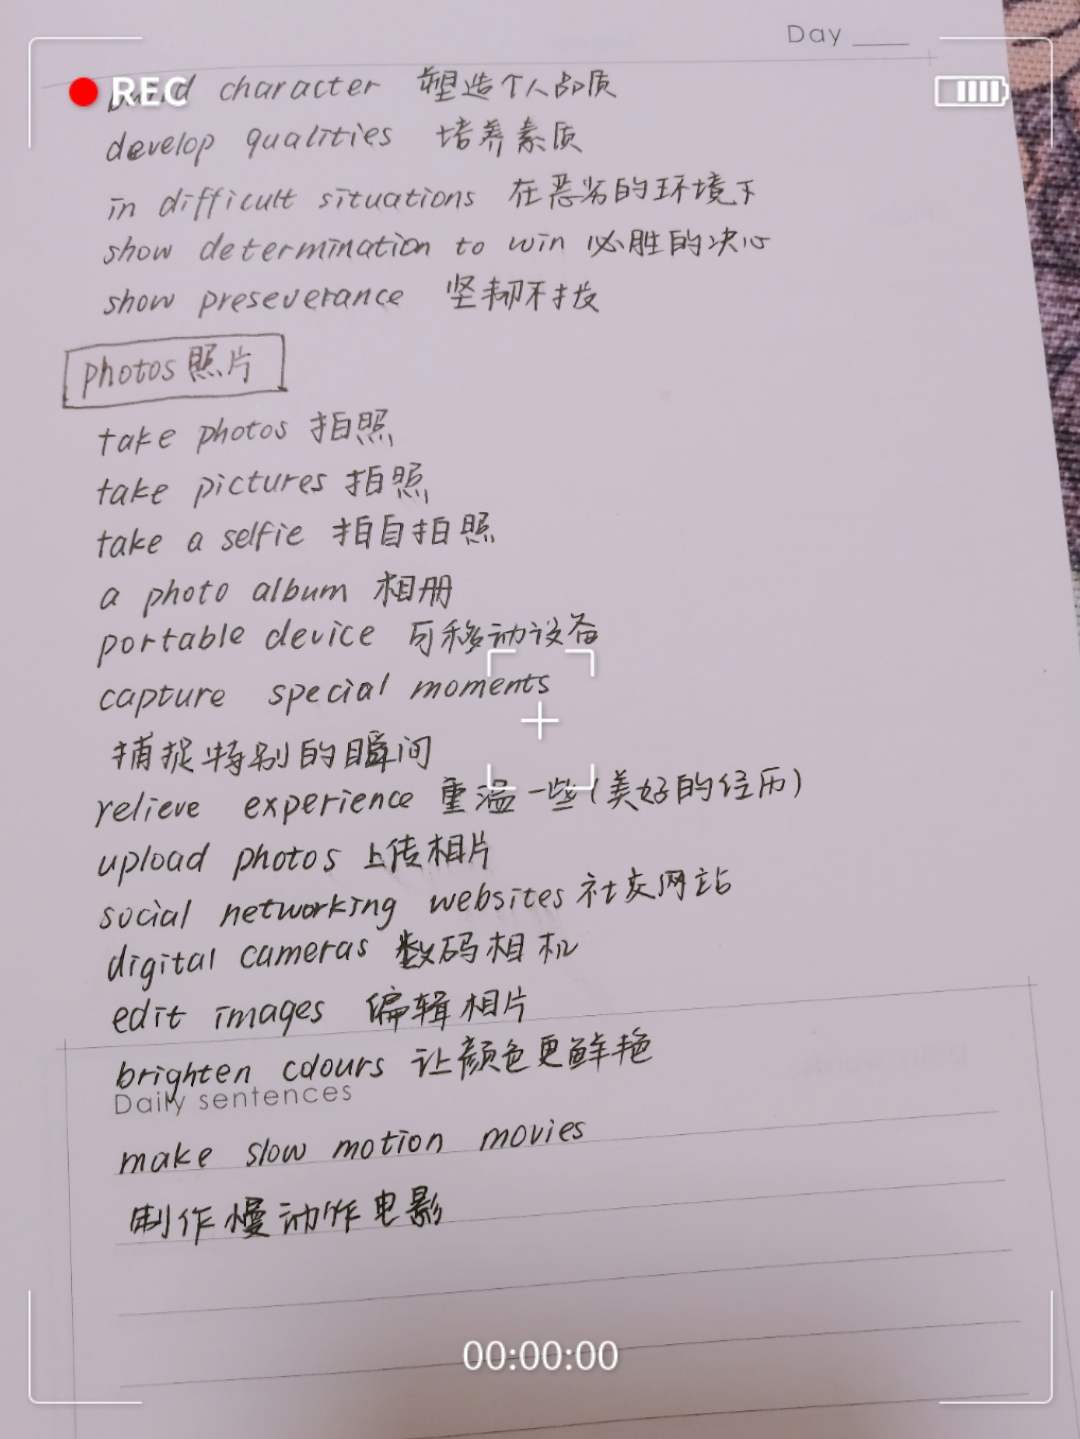 Day
REC
build character 塑造个人品质
develop qualities 培养素质
in difficult situations 在恶劣的环境下
show determination to win 必胜的决心
show preseverance 坚韧不拔
photos 照片
take photos 拍照
take pictures 拍照
take a selfie 拍自拍照
a photo album 相册
portable device 可移动设备
capture special moments
捕捉特别的瞬间
relieve experience 重温一些(美好的经历)
upload photos 上传相片
social networking websites 社交网站
digital cameras 数码相机
edit images 编辑相片
brighten colours 让颜色更鲜艳
Daily sentences
make slow motion movies
制作慢动作电影
00:00:00